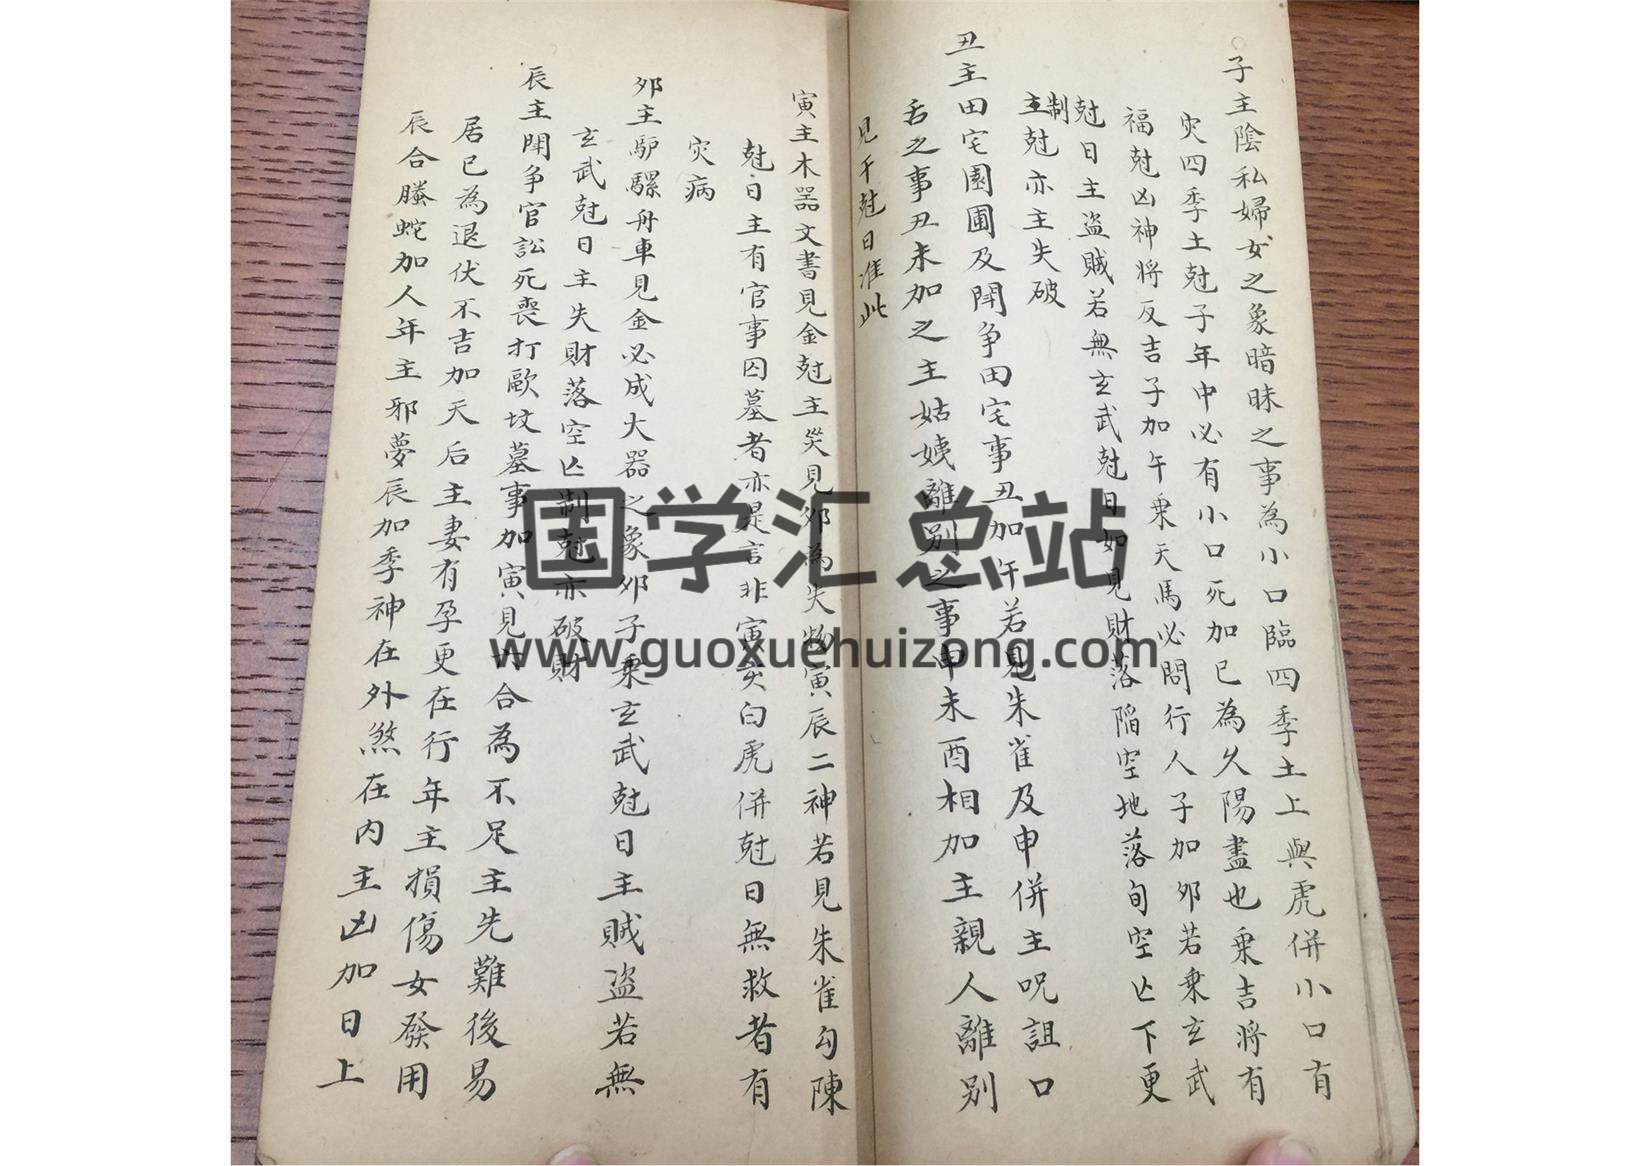 子主陰私婦女之象暗昧之事為小口臨四季土上與虎併小口有
灾四季土尅子年中必有小口死加巳為久陽盡也乗吉将有
福尅凶神将反吉子加午乗天馬必問行人子加夘若乗玄武
尅日主盗賊若無玄武尅日如見財落陷空地落旬空亡下更
主制尅亦主失破
丑主田宅園圃及閗争田宅事丑加午若見朱雀及申併主呪詛口
舌之事丑未加之主姑姨離别之事申未酉相加主親人離别
見干尅日准此
寅主木器文書見金尅主灾見夘為失物寅辰二神若見朱雀勾陳
尅日主有官事囚墓者亦是言非寅灾白虎併尅日無救者有
灾病
夘主馿騾舟車見金必成大器之象夘子乗玄武尅日主賊盗若無
玄武尅日主失財落空亡制尅亦破財
辰主閗争官訟死喪打毆坟墓事加寅見六合為不足主先難後易
居巳為退伏不吉加天后主妻有孕更在行年主損傷女發用
辰合螣蛇加人年主邪夢辰加季神在外煞在内主凶加日上
国学汇总站
www.guoxuehuizong.com